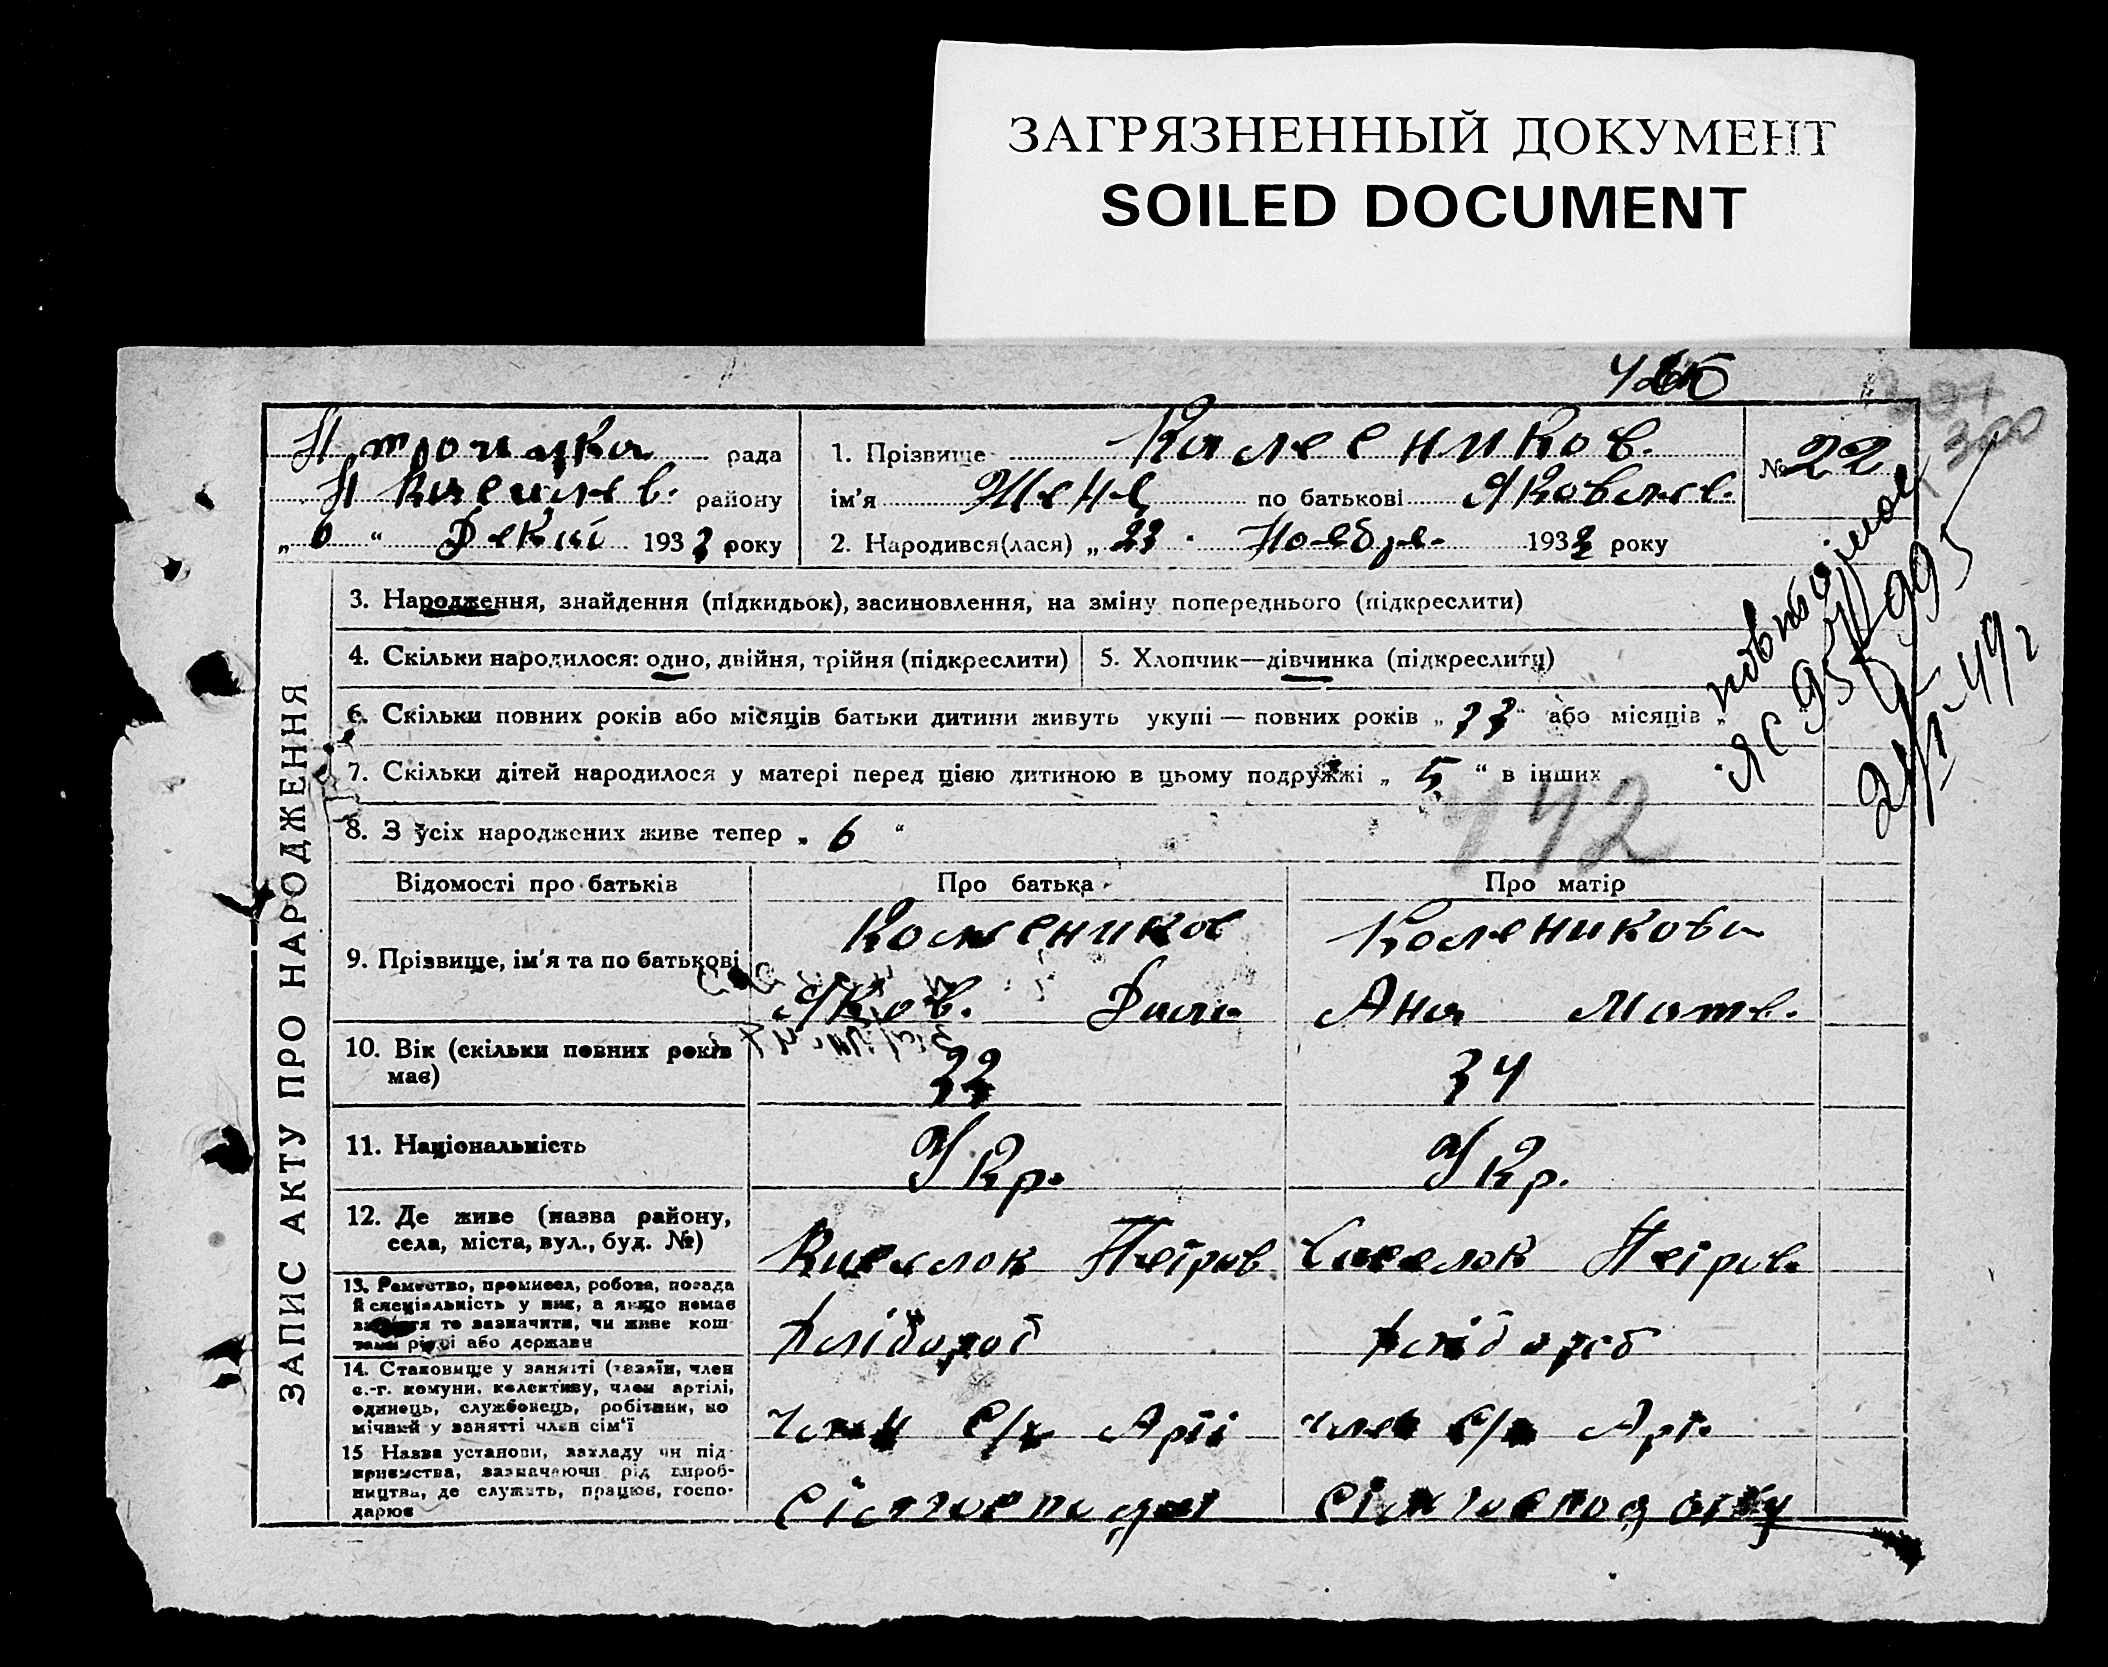 ЗАГРЯЗНЕННЫЙ ДОКУМЕНТ
SOILED DOCUMENT
300
Н Троицка рада
Н Василев. району
„6“ Декаб 1933 року
1. Прізвище Калеников.
ім'я Женя по батькові Яковлев.
№ 22
2. Народився(лася) „23 Ноября 1933 року
ЗАПИС АКТУ ПРО НАРОДЖЕННЯ
3. Народження, знайдення (підкидьок), засиновлення, на зміну попереднього (підкреслити)
4. Скільки народилося: одно, двійня, трійня (підкреслити)
5. Хлопчик—дівчинка (підкреслити)
6. Скільки повних років або місяців батьки дитини живуть укупі — повних років „13“ або місяців „
7. Скільки дітей народилося у матері перед цією дитиною в цьому подружжі „5“ в інших
8. З усіх народжених живе тепер „6“
442
Відомості про батьків
Про батька
Про матір
9. Прізвище, ім'я та по батькові
Калеников
Яков.
Каленикова
Аня Матв.
10. Вік (скільки повних років має)
33
34
11. Національність
Укр.
Укр.
12. Де живе (назва району, села, міста, вул., буд. №)
Виселок Петров
Виселок Петров.
13. Ремество, промисел, робота, посада й спеціяльність у них, а якщо немає заняття то зазначити, чи живе коштами рідні або держави
Хлібороб
Хлібороб
14. Становище у занятті (хазяїн, член с.-г. комуни, колективу, член артілі, одинець, службовець, робітник, помічний у занятті член сім'ї
Член С/х Арті
Член С/х Арт.
15 Назва установи, закладу чи підприємства, зазначаючи рід виробництва, де служить, працює, господарює